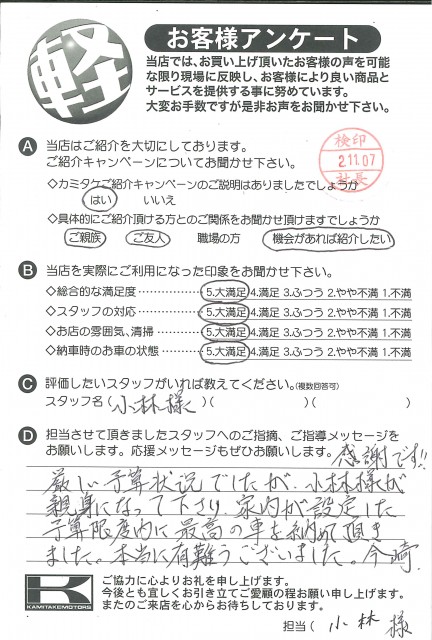 軽
お客様アンケート
当店では、お買い上げ頂いたお客様の声を可能
な限り現場に反映し、お客様により良い商品と
サービスを提供する事に努めています。
大変お手数ですが是非お声をお聞かせ下さい。
A 当店はご紹介を大切にしております。
ご紹介キャンペーンについてお聞かせ下さい。
検印
211.07
社長
◇カミタケご紹介キャンペーンのご説明はありましたでしょうか
はい いいえ
◇具体的にご紹介頂ける方とのご関係をお聞かせ頂けますでしょうか
ご親族 ご友人 職場の方 機会があれば紹介したい
B 当店を実際にご利用になった印象をお聞かせ下さい。
◇総合的な満足度…………5.大満足 4.満足 3.ふつう 2.やや不満 1.不満
◇スタッフの対応…………5.大満足 4.満足 3.ふつう 2.やや不満 1.不満
◇お店の雰囲気、清掃……5.大満足 4.満足 3.ふつう 2.やや不満 1.不満
◇納車時のお車の状態……5.大満足 4.満足 3.ふつう 2.やや不満 1.不満
C 評価したいスタッフがいれば教えてください。(複数回答可)
スタッフ名(小林様)( )( )
D 担当させて頂きましたスタッフへのご指摘、ご指導メッセージを
お願いします。応援メッセージもぜひお願いします。
感謝です!!
厳しい予算状況でしたが、小林様が
親身になって下さり、家内が設定した
予算限度内に最高の車を納めて頂き
ました。本当に有難うございました。今崎
K
KAMITAKEMOTORS
ご協力に心よりお礼を申し上げます。
今後とも宜しくお引き立てご愛顧の程お願い申し上げます。
またのご来店を心からお待ちしております。
担当( 小林 様